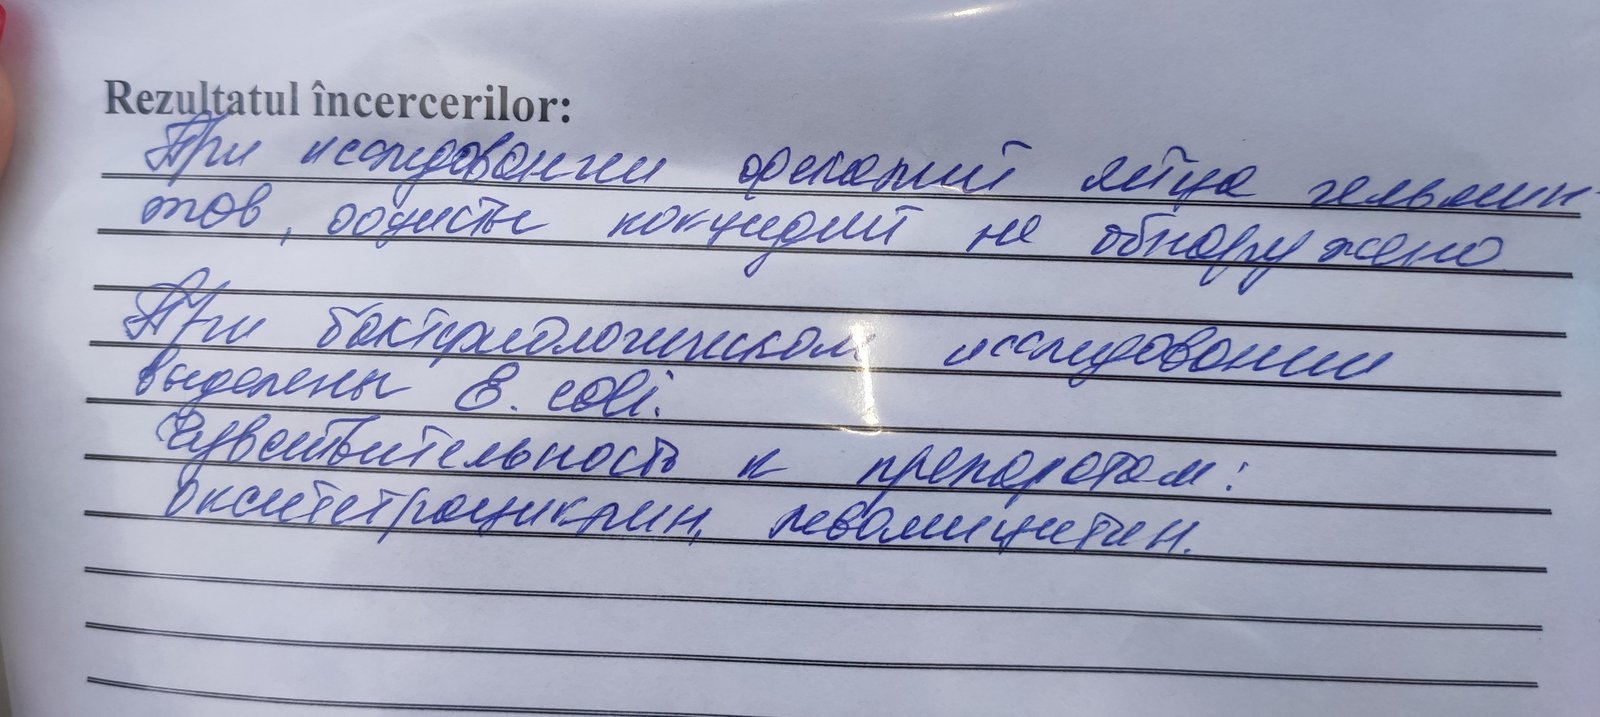 Rezultatul încercerilor:
При исследовании фекалий яйца гельмин-
тов, ооцисты кокцидий не обнаружено
При бактериологическом исследовании
выделены E. coli.
Чувствительность к препаратам:
окситетрациклин, левомицетин.